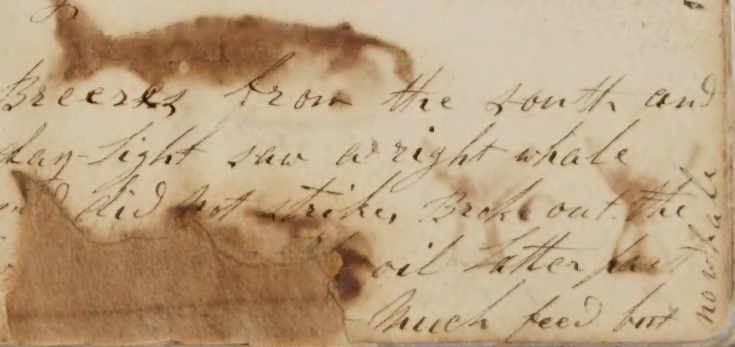 Breezes from the south and
day-light saw a right whale
did not strike, Broke out the
oil Latter part
Much feed but
no whale